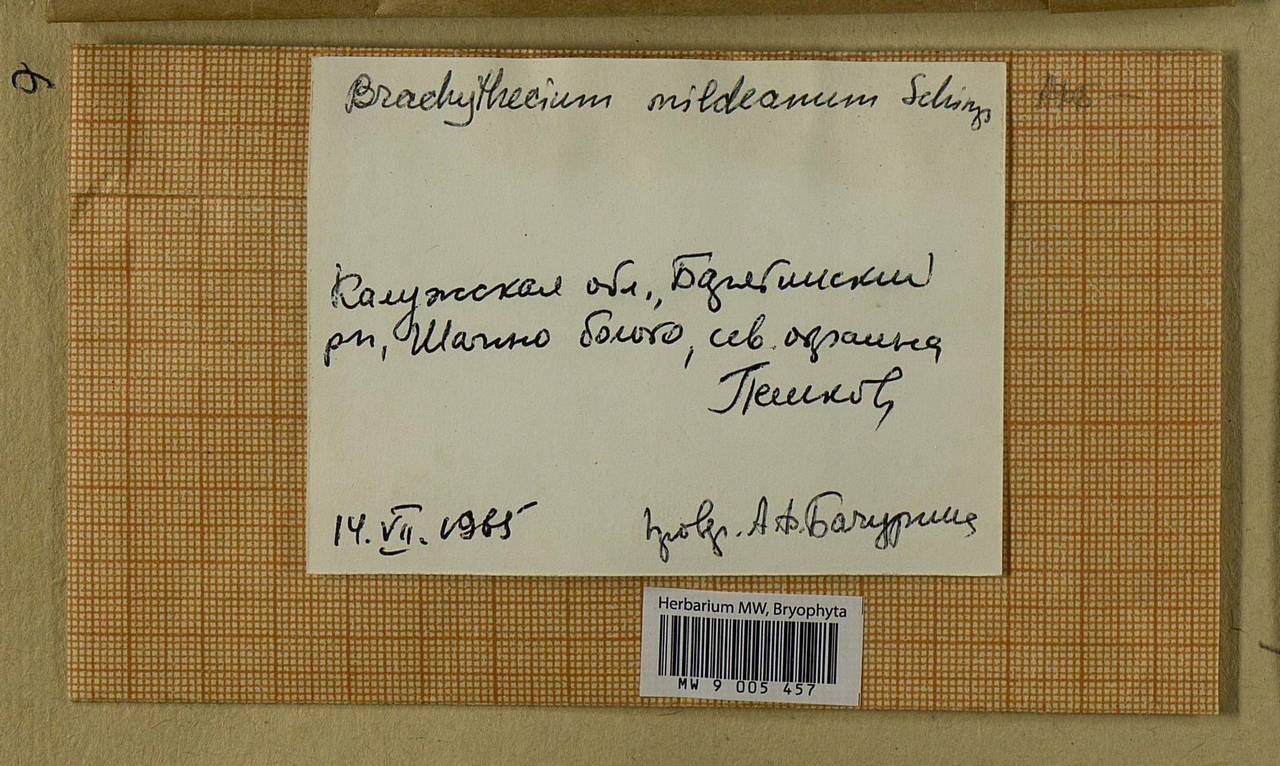 Brachythecium mildeanum Schimp
Калужская обл., Барятинский
рн, Шатино болото, сев. окраина
Пешков
14.VII.1985
провер. А.Ф. Бачурина
Herbarium MW, Bryophyta
MW 9 005 457